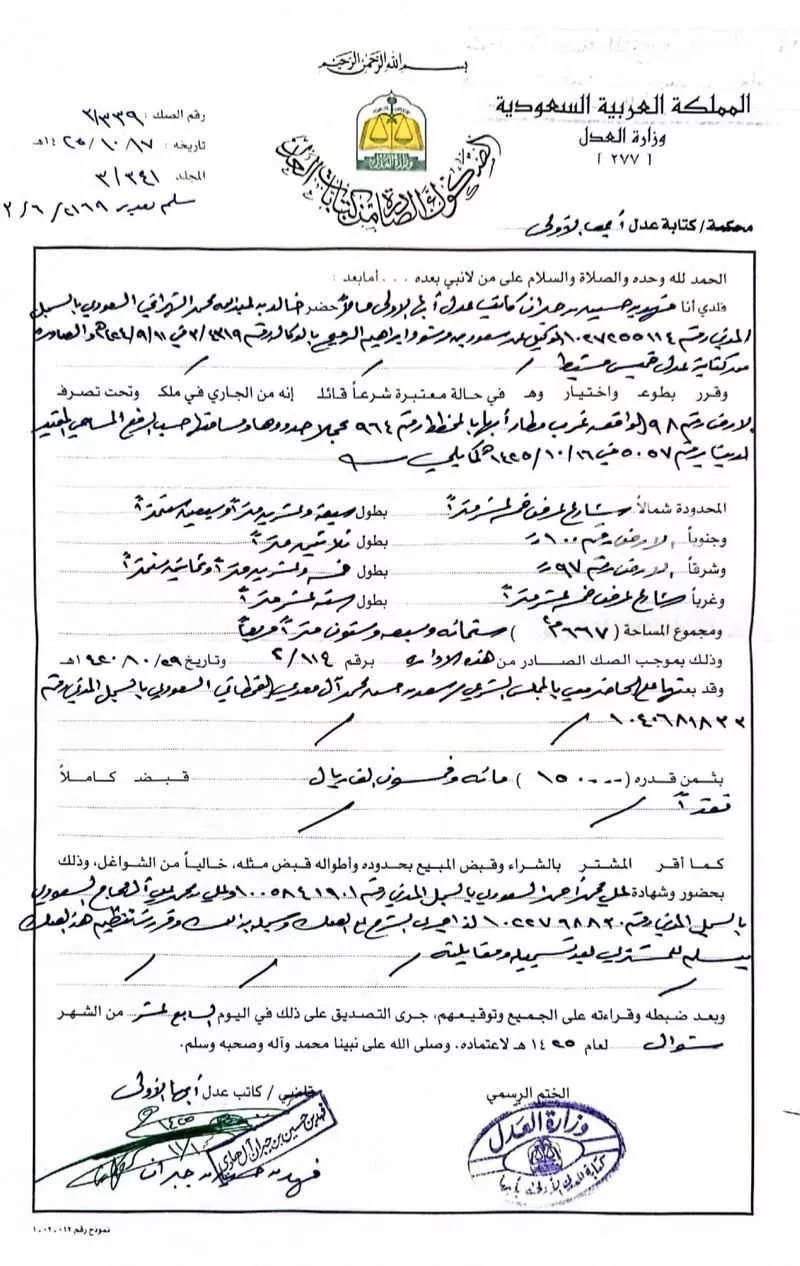 بسم الله الرحمن الرحيم
المملكة العربية السعودية
وزارة العدل
[ ٢٧٧ ]
الصكوك الصادرة من كتابات العدل
رقم الصك : ٣/٣٣٩
تاريخه : ١٤٢٥/١٠/١٧هـ
المجلد ٣/٣٤١
محكمة/ كتابة عدل أبها الأولى
الحمد لله وحده والصلاة والسلام على من لا نبي بعده ... أما بعد :
فلدي أنا فهد بن حسين بن جبران كاتب عدل أبها الأولى حالاً حضر خالد بن محمد الشهراني السعودي بالسجل
المدني رقم ١٠٢٧٢٥٥١١٤ الوكيل عن سعود بن إبراهيم بالوكالة رقم ٣/٤٣١٩ في ١٤٢٤/٩/١١هـ والصادرة
من كتابة عدل خميس مشيط
وقرر بطوع واختيار وهـ في حالة معتبرة شرعاً قائلا إنه من الجاري في ملك وتحت تصرف
الأرض رقم ٩٨ الواقعة غرب مطار أبها بالمخطط رقم ٩٦٤ حدودها ومساحتها حسب الرفع المساحي المقيد
لدينا برقم ٥٠٥٧ في ١٤٢٥/١٠/١٦هـ كما يلي
المحدودة شمالاً شارع عرض خمسة عشر متراً بطول سبعة وعشرين متراً وسبعين سنتمتراً
وجنوباً الأرض رقم ١٠٠ بطول ثلاثين متراً
وشرقاً الأرض رقم ٩٧ بطول خمسة وعشرين متراً وثمانين سنتمتراً
وغرباً شارع عرض خمسة عشر متراً بطول ستة عشر متراً
ومجموع المساحة ( ٦٦٧م٢ ) ستمائة وسبعة وستون متراً مربعاً
وذلك بموجب الصك الصادر من هذه الإدارة برقم ٢/١١٤ وتاريخ ١٤٢٠/١٠/٢٩هـ
وقد بعتها على الحاضر معي بالمجلس الشرعي سعد بن حسن محمد آل معدي القحطاني السعودي بالسجل المدني رقم
١٠٤٠٦٨٩٨٣٣
بثمن قدره ( ١٥٠٠٠٠ ) مائة وخمسون ألف ريال قبض كاملاً
نقداً
كما أقر المشتر بالشراء وقبض المبيع بحدوده وأطواله قبض مثله، خالياً من الشواغل، وذلك
بحضور وشهادة علي محمد أحمد السعودي بالسجل المدني رقم ١٠٠٥٨٤١٩٠١ وعلي بن محمد علي السعودي
بالسجل المدني رقم ١٠٢٢٧٦٨٨٣٠ لذا جرى الشرح على الصك وسجله بذلك وقررت تنظيم هذا الصك
ليسلم للمشتري بعد تسجيله ومقابلته
وبعد ضبطه وقراءته على الجميع وتوقيعهم، جرى التصديق على ذلك في اليوم السابع عشر من الشهر
شوال لعام ١٤٢٥ هـ لاعتماده، وصلى الله على نبينا محمد وآله وصحبه وسلم.
الختم الرسمي
قاضي/ كاتب عدل أبها الأولى
فهد بن حسين بن جبران آل حامي
فهد بن حسين بن جبران
وزارة العدل
نموذج رقم ١٠٠٢٠٠١٢